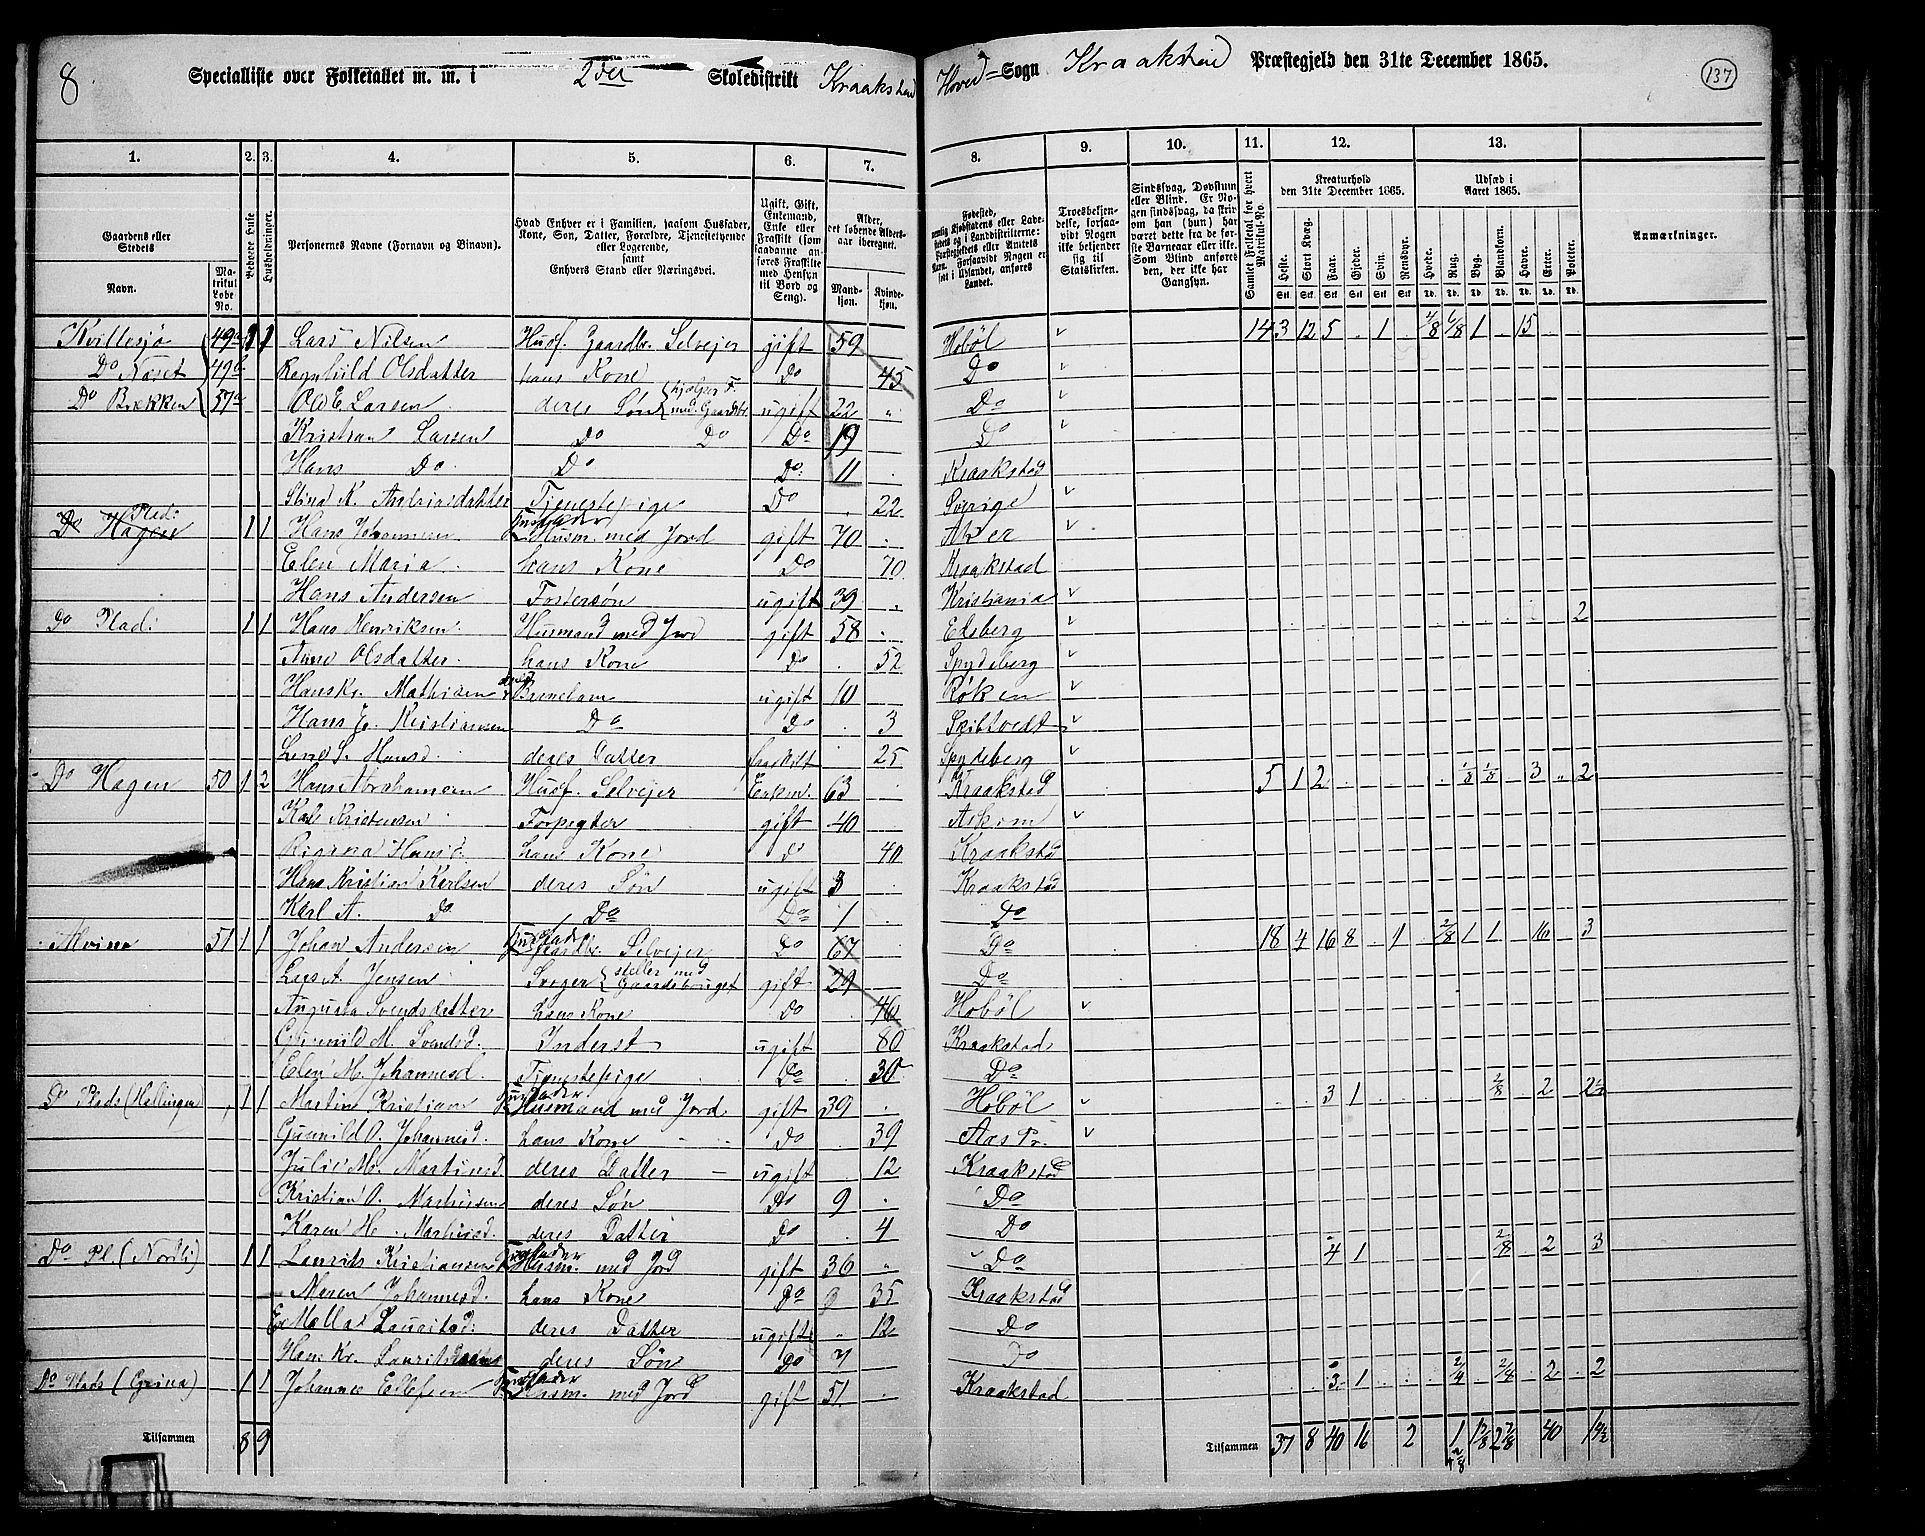 8 Specialliste over Folketallet m. m. i 2det Skoledistrikt Kraakstad Hoved=Sogn Kraakstad Præstegjeld den 31te December 1865. 137
1. 2. 3. 4. 5. 6. 7. 8. 9. 10. 11. 12. 13.
Gaardens eller Stedets
Navn. Matrikul Løbe-No.
Beboede Huse
Husholdninger.
Personernes Navne (Fornavn og Binavn).
Hvad Enhver er i Familien, saasom Husfader, Kone, Søn, Datter, Forældre, Tjenestetyende eller Logerende, samt Enhvers Stand eller Næringsvei.
Ugift, Gift, Enkemand, Enke eller Fraskilt (som saadanne anføres Fraskilte med Hensyn til Bord og Seng).
Alder, det løbende Aldersaar iberegnet.
Mandkjøn. Kvindekjøn.
Troesbekjendelse, forsaavidt Nogen ikke bekjender sig til Statskirken.
Sindssvag, Døvstum eller Blind. Er Nogen sindssvag, da skriv om han (hun) har været dette fra de første Barneaar eller ikke. Som Blind anføres den, der ikke har Gangsyn.
Samlet Folketal for hvert Matrikul-No.
Kreaturhold den 31te December 1865.
Heste. Stort Kvæg. Faar. Gjeder. Svin. Rensdyr.
Udsæd i Aaret 1865.
Hvede. Rug. Byg. Blandkorn. Havre. Erter. Poteter.
Anmærkninger.
49a 1 1 Lars Nilsen Husf. Gaardbr. Selvejer gift 59 Hobøl 14 3 12 5 . 1 . 1 . 15
Do Næset 49b Ragnhild Olsdatter hans Kone Do 45 Do
Do Brækken 57a Ole E. Larsen deres Søn hjælper F. med Gaardsbr. ugift 22 Do
Kristian Larsen Do Do Do 19 Do
Hans Do Do Do 11 Kraakstad
Stina K. Andriasdatter Tjenestepige Do 22 Sverige
Do Hagen Plad: 1 1 Hans Johannesen Husfader Husm. med Jord gift 70
Elen Maria hans Kone Do 70 Kraakstad
Hans Andersen Fostersøn ugift 39 Kristiania
Do Plad: 1 1 Hans Henriksen Husmand med Jord gift 58 Edsberg 2
Anne Olsdatter hans Kone Do 52 Spydeberg
Hans Kr. Mathisen ugift 10 Røken
Hans E. Kristiansen Do Do 3 Skibtvedt
Lene S. Hansd. deres Datter fraskilt 25 Spydeberg
Do Hagen 50 1 2 Hans Abrahamsen Husf. Selvejer Enkem. 63 Kraakstad 5 1 2 3 2
Karl Kristensen Forpagter gift 40 Askim
Hansd. hans Kone Do 40 Kraakstad
Hans Kristian Karlsen deres Søn ugift 3 Kraakstad
Karl A. Do Do Do 1 Do
51 1 1 Johan Andersen Husfader Gaardbr. Selvejer Do 67 Do 18 4 16 8 . 1 2/8 1 1 . 16 . 3
Lars A. Jensen Svoger steller med Gaardsbruget gift 29 Do
Augusta Svendsdatter hans Kone Do 46 Hobøl
Gunnild M. Svendsd. Inderst ugift 80 Kraakstad
Elen M. Johannesd. Tjenestepige Do 30 Do
Do Plads (Hellingen) 1 1 Martin Kristiansen Husfader Husmand med Jord gift 39 Hobøl 3 1 2/8 2 2 1/2
Gunnild O. Johannesd. hans Kone Do 39 Aas Pr.
Julie M. Martinsd. deres Datter ugift 12 Kraakstad
Kristian O. Martinsen deres Søn Do 9 Do
Karen H. Martinsd. deres Datter Do 4 Do
Do Pl. (Nordli) 1 1 Laurits Kristiansen Husfader Husm. med Jord gift 36 Do 4 1 2/8 2 3
Maren Johannesd. hans Kone Do 35 Kraakstad
Lauritsd: deres Datter ugift 12 Do
Hans Kr. Lauritssen deres Søn Do 7 Do
Do Plads (Grina) 1 1 Johannes Ellefsen Husfader Husm. med Jord gift 51 Kraakstad 3 1 2/4 2/8 2 2
Tilsammen 8 9 Tilsammen 37 8 40 16 2 40